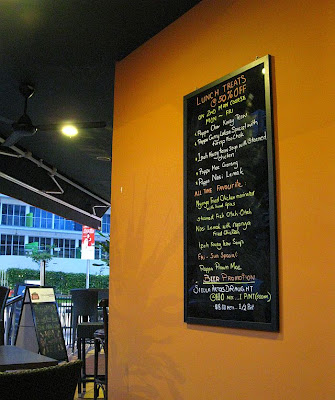 LUNCH TREATS
@ 50% OFF
ON 2ND MAIN COURSE
MON - FRI
Papa Char Kway Teow
Papa Curry Laksa Special with
Chok
Ipoh Kway Teow Soup with Steamed
Chicken
Papa Mee Goreng
Papa Nasi Lemak
ALL TIME FAVOURITE
Nyonya Fried Chicken marinated
with hand spices
Steamed Fish Otah Otah
Nasi Lemak with nyonya
Fried Chicken
Ipoh Kway Teow Soup
Fri - Sun Special
Papa Prawn Mee
BEER PROMOTION
STELLA ARTOIS DRAUGHT
@ $10 NETT ... 1 PINT (500ml)
$8.00 nett... 1/2 Pint